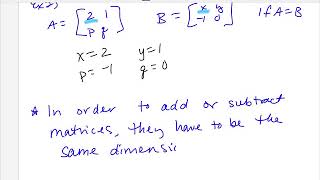 Ex2) A = [2 1 B = [x y If A=B
p q] -1 0]
x = 2 y = 1
p = -1 q = 0
* In order to add or subtract
matrices, they have to be the
same dimensi